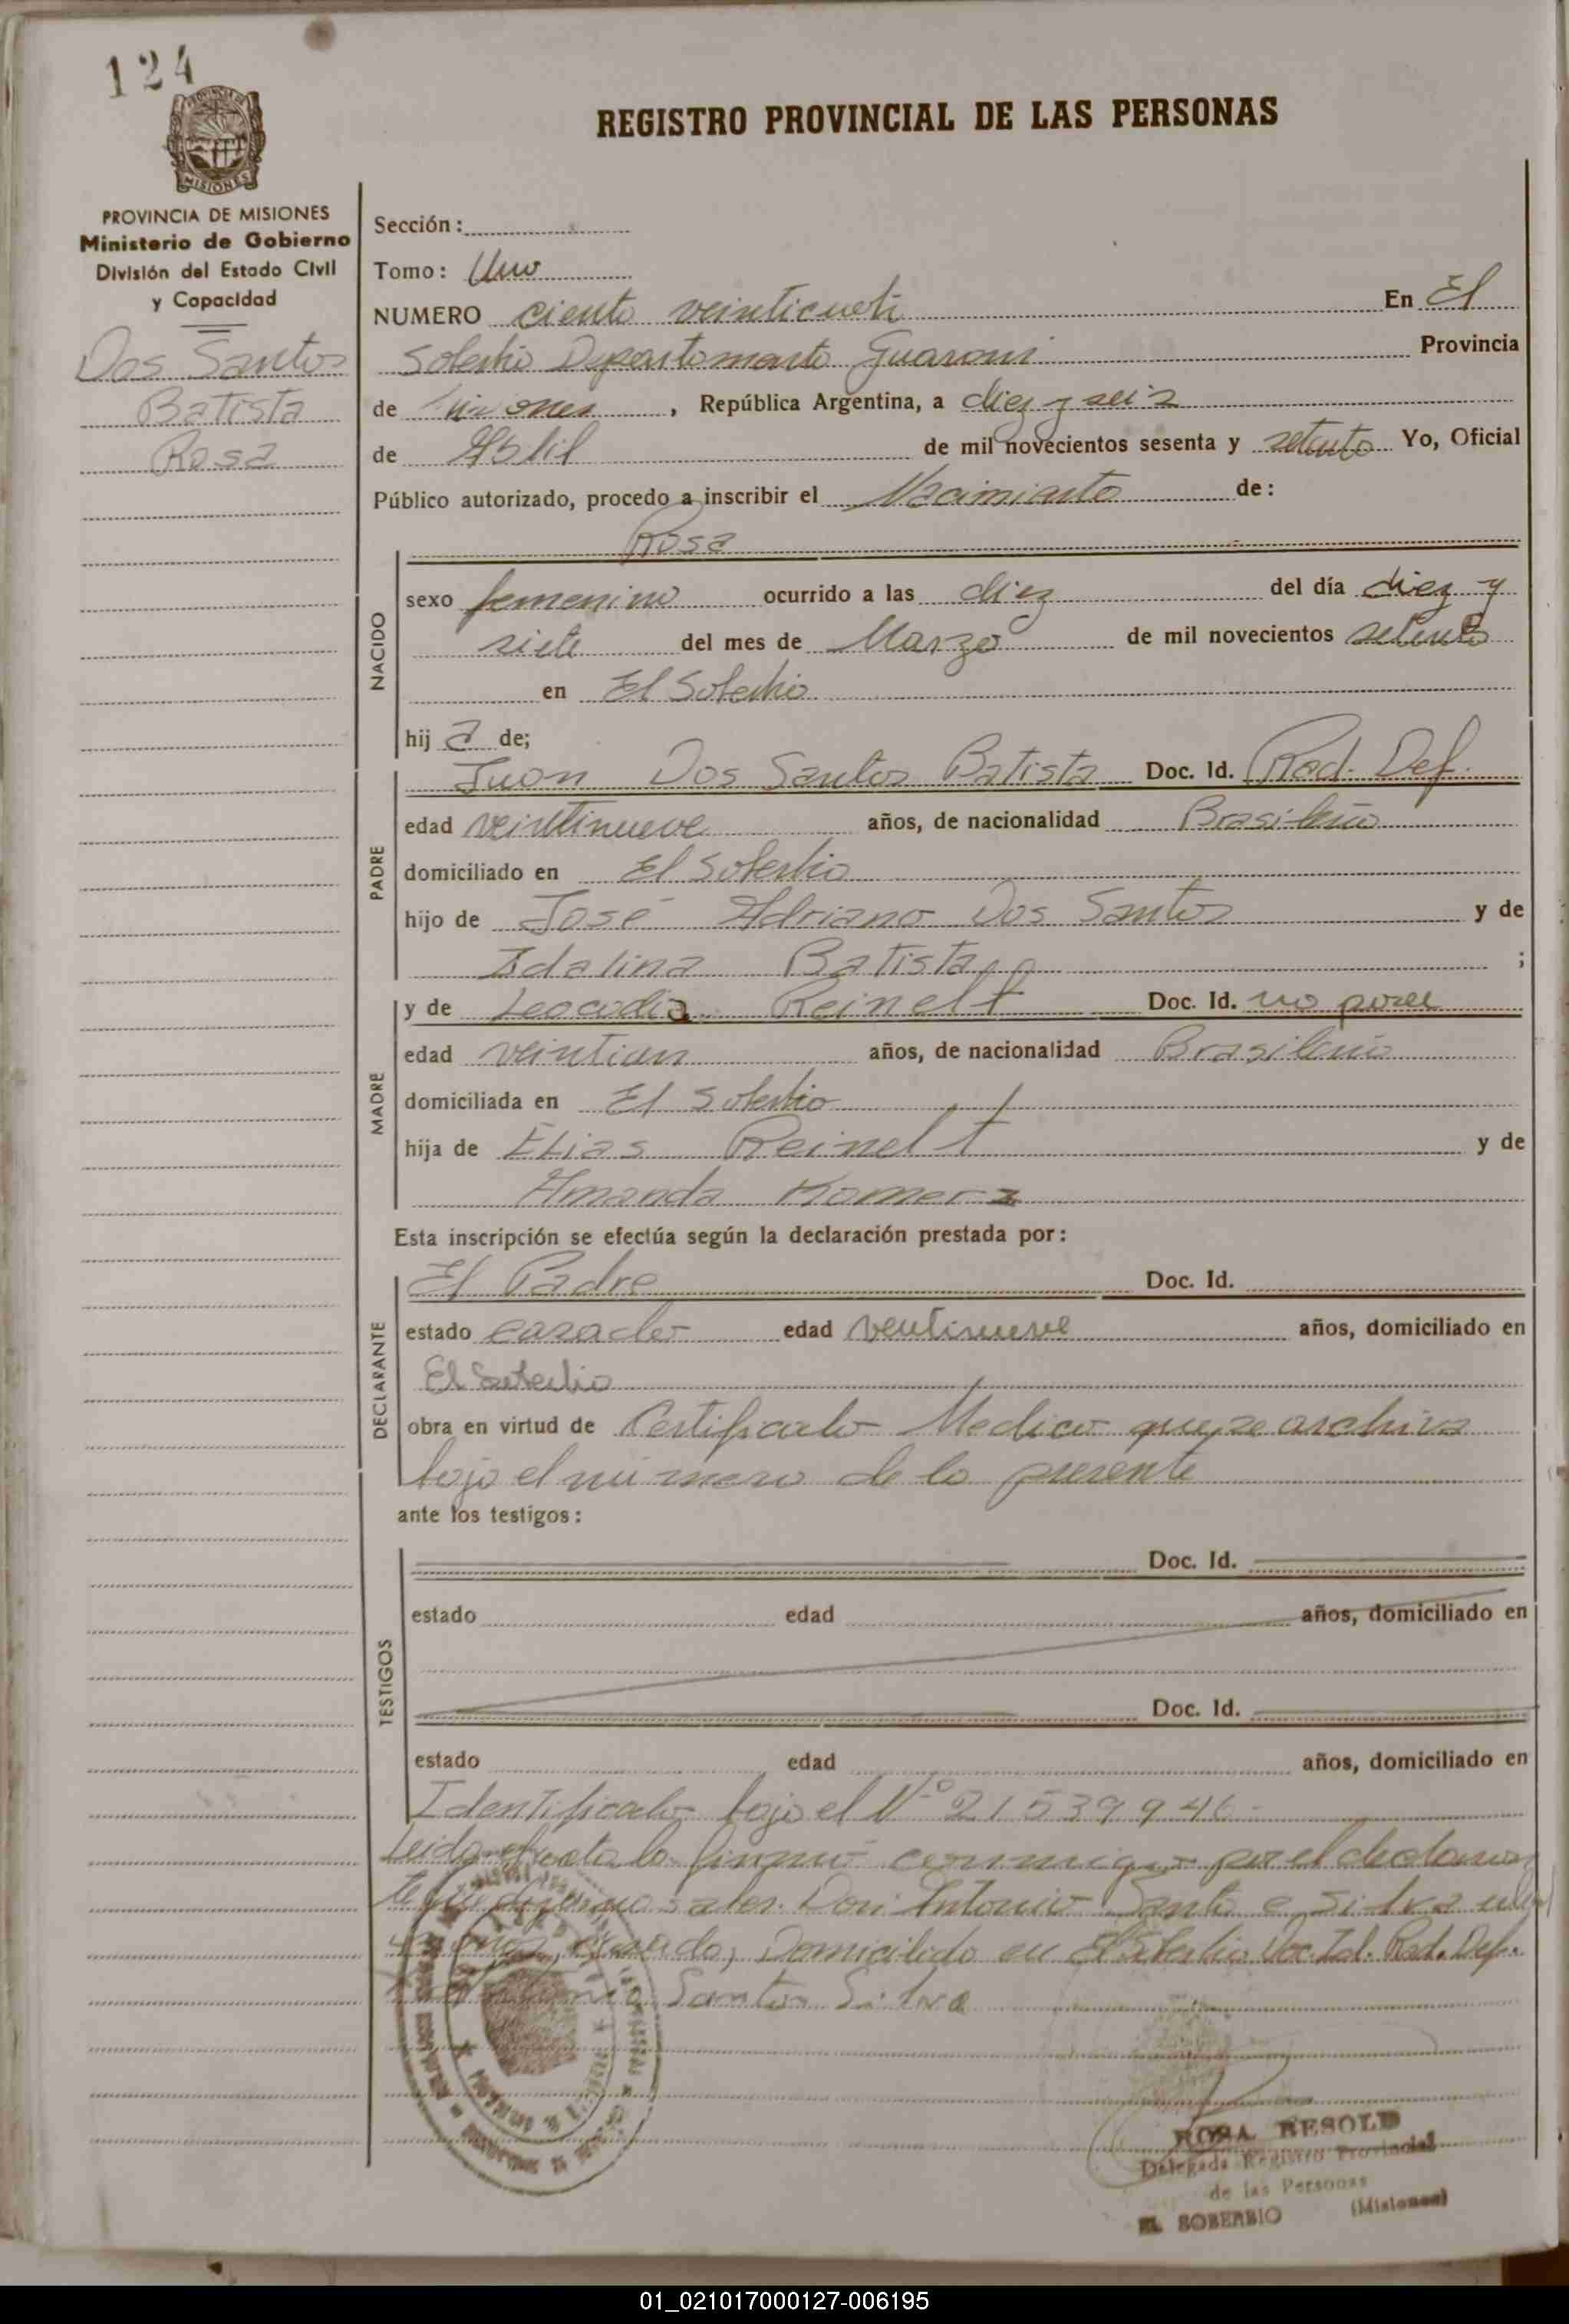 124
REGISTRO PROVINCIAL DE LAS PERSONAS
PROVINCIA DE MISIONES
Ministerio de Gobierno
División del Estado Civil
y Capacidad
Dos Santos
Batista
Rosa
Sección:
Tomo: Uno
NUMERO ciento veinticuatro En El
Soberbio Departamento Guarani Provincia
de Misiones, República Argentina, a diez y seis
de Abril de mil novecientos sesenta y setenta Yo, Oficial
Público autorizado, procedo a inscribir el Nacimiento de:
Rosa
NACIDO
sexo femenino ocurrido a las diez del día diez y
siete del mes de Marzo de mil novecientos setenta
en El Soberbio
hij a de;
PADRE
Juan Dos Santos Batista Doc. Id. Rad. Def.
edad veintinueve años, de nacionalidad Brasileño
domiciliado en El Soberbio
hijo de José Adriano Dos Santos y de
Idalina Batista ;
MADRE
y de Leocadia Reinelt Doc. Id. no posee
edad veintiun años, de nacionalidad Brasileña
domiciliada en El Soberbio
hija de Elias Reinelt y de
Amanda Komerz
Esta inscripción se efectúa según la declaración prestada por:
DECLARANTE
El Padre Doc. Id.
estado casado edad veintinueve años, domiciliado en
El Soberbio
obra en virtud de Certificado Medico que se archiva
bajo el numero de la presente
ante los testigos:
TESTIGOS
Doc. Id.
estado edad años, domiciliado en
Doc. Id.
estado edad años, domiciliado en
Identificado bajo el Nº 21539946
Leida el acta la firmó conmigo por el declaran
te saber Don Antonio Santo e Silva
casado, Domiciliado en El Soberbio Doc. Id. Rad. Def.
Antonio Santos Silva
ROSA BESOLD
Delegada Registro Provincial
de las Personas
EL SOBERBIO (Misiones)
01_021017000127-006195